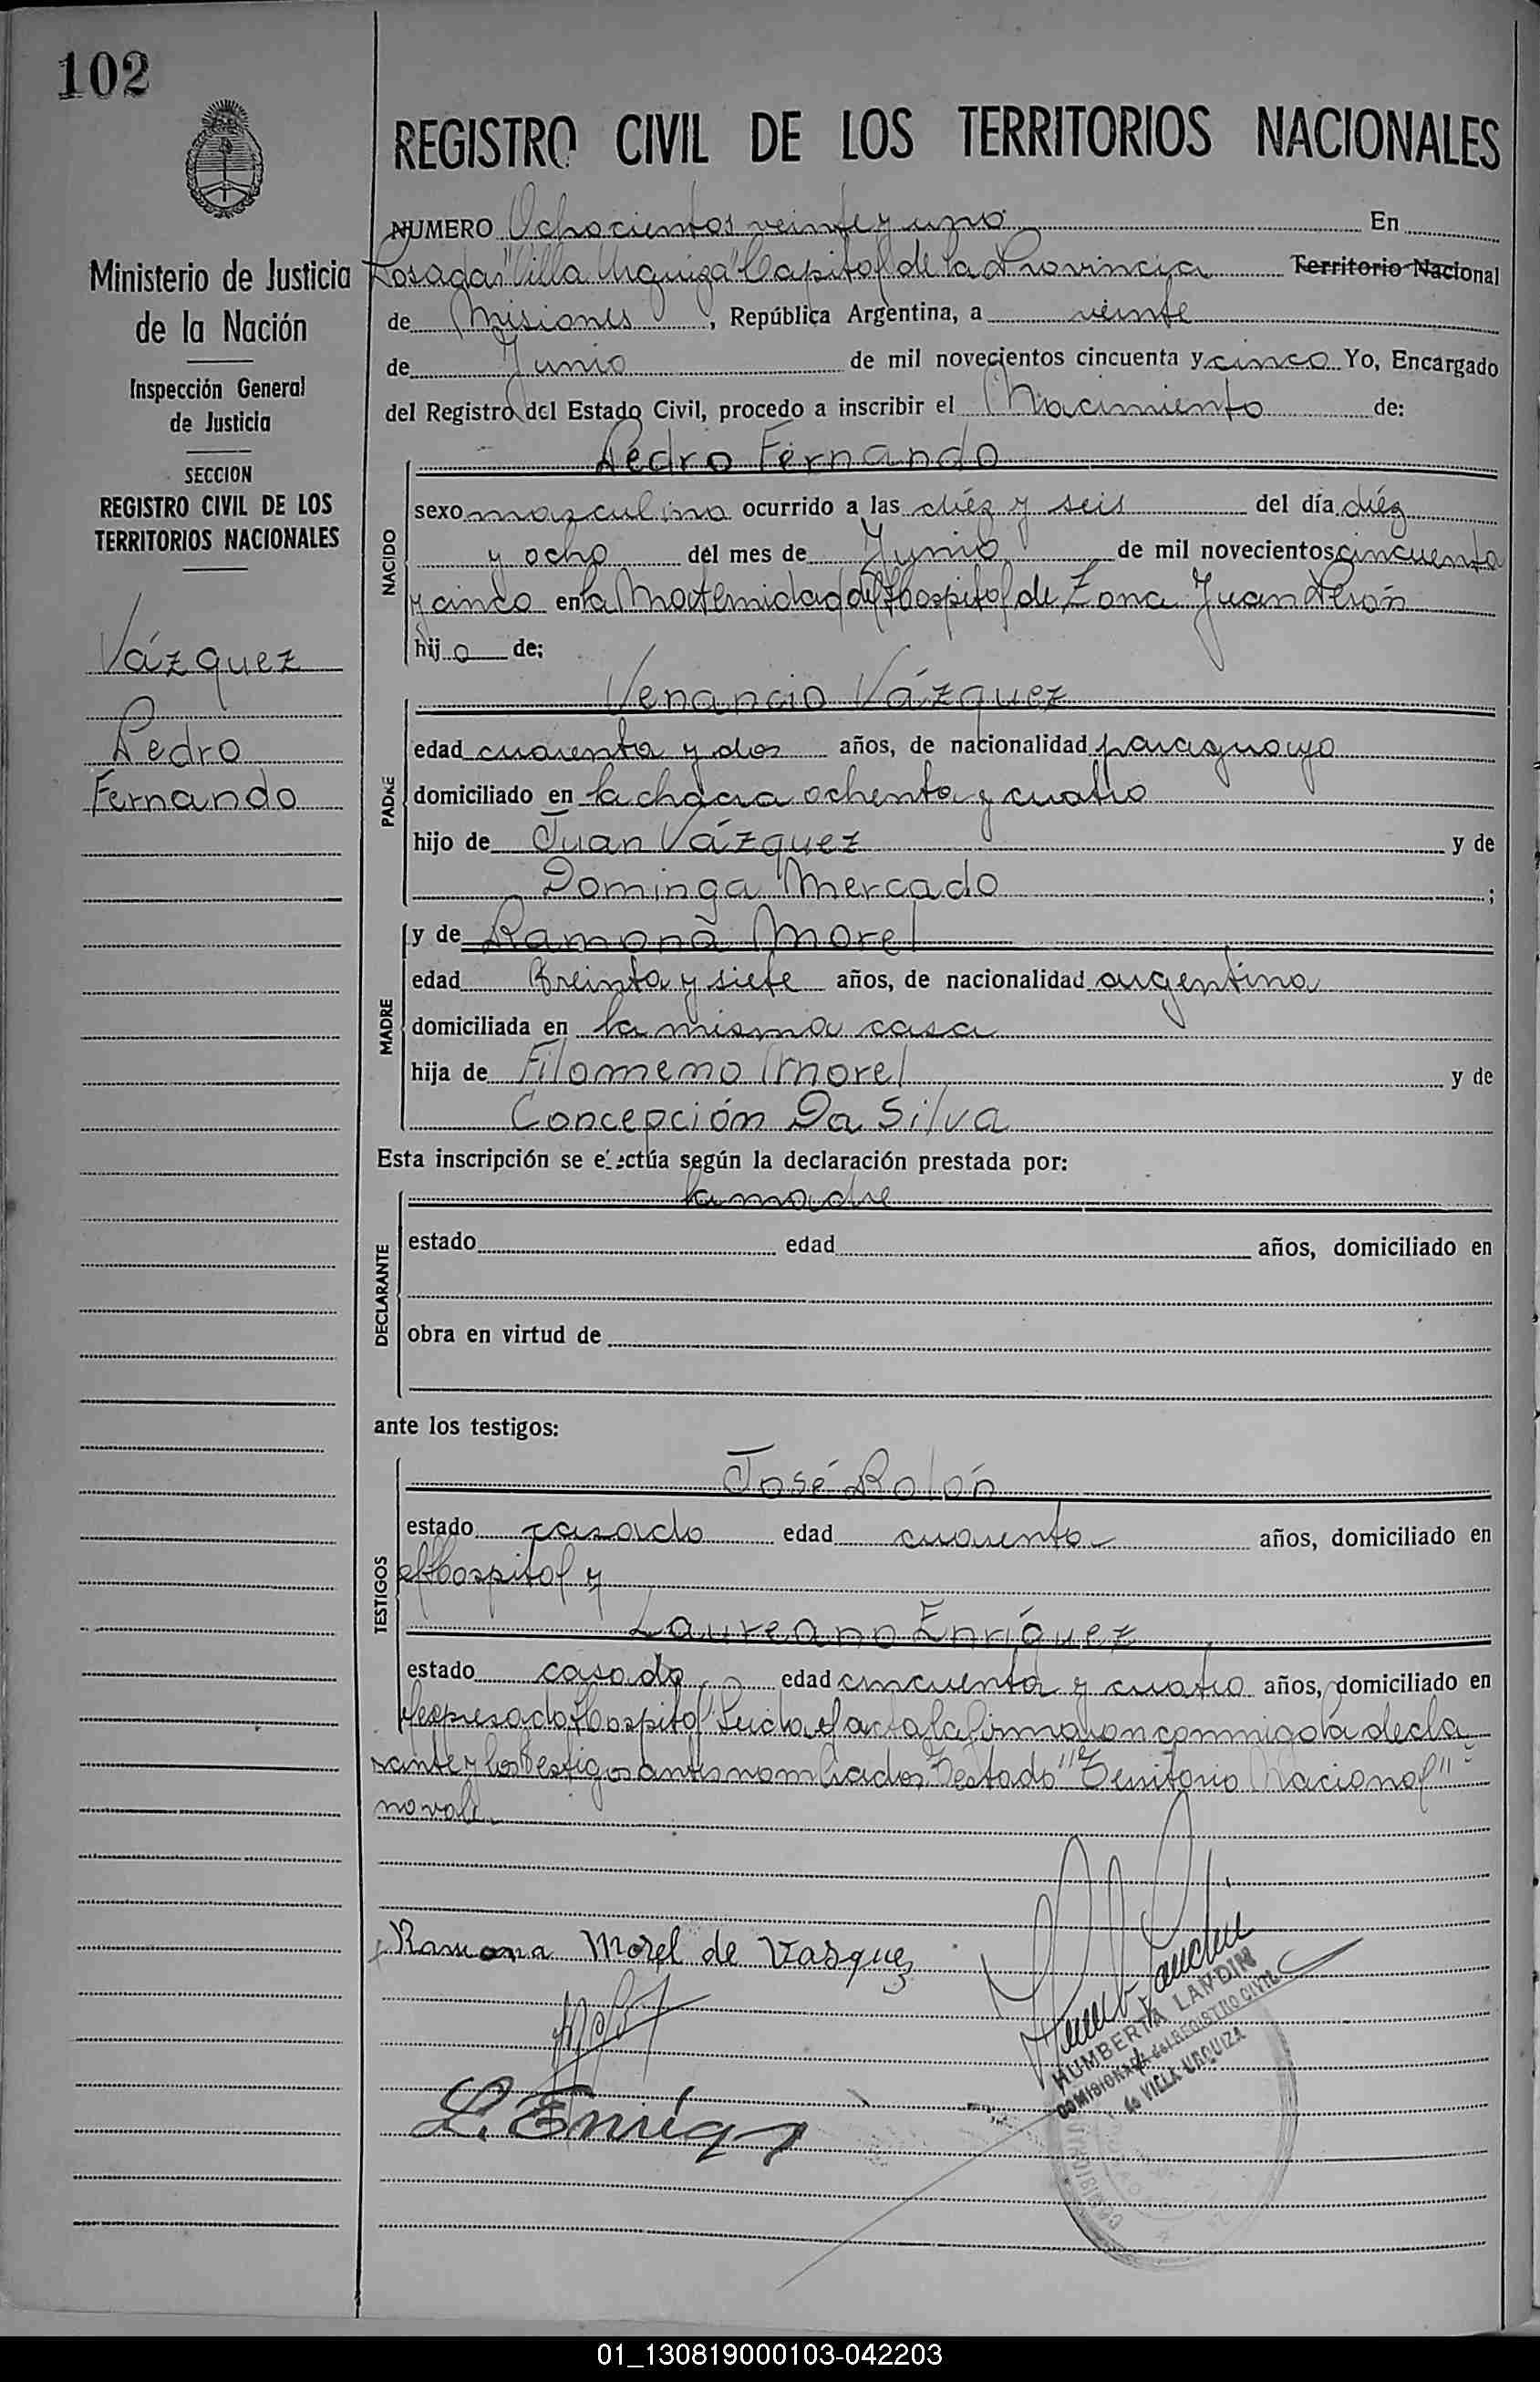 102
REGISTRO CIVIL DE LOS TERRITORIOS NACIONALES
NUMERO Ochocientos veinte y uno En
Ministerio de Justicia
de la Nación
Inspección General
de Justicia
SECCION
REGISTRO CIVIL DE LOS
TERRITORIOS NACIONALES
Vázquez
Pedro
Fernando
Posadas "Villa Urquiza" Capital de la Provincia Territorio Nacional
de Misiones, República Argentina, a veinte
de Junio de mil novecientos cincuenta y cinco Yo, Encargado
del Registro del Estado Civil, procedo a inscribir el Nacimiento de:
NACIDO
Pedro Fernando
sexo masculino ocurrido a las diéz y seis del día diéz
y ocho del mes de Junio de mil novecientos cincuenta
y cinco en la Maternidad del Hospital de Zona Juan Perón
hijo de:
PADRE
Venancio Vázquez
edad cuarenta y dos años, de nacionalidad paraguayo
domiciliado en la chacra ochenta y cuatro
hijo de Juan Vázquez y de
Dominga Mercado ;
MADRE
y de Ramona Morel
edad treinta y siete años, de nacionalidad argentina
domiciliada en la misma casa
hija de Filomemo Morel y de
Concepción Da Silva
Esta inscripción se efectúa según la declaración prestada por:
DECLARANTE
la madre
estado edad años, domiciliado en
obra en virtud de
ante los testigos:
TESTIGOS
José Rolón
estado casado edad cuarenta años, domiciliado en
el Hospital y
Laureano Enríquez
estado casado edad cincuenta y cuatro años, domiciliado en
el expresado Hospital. Leida el acta la firmaron conmigo la decla
rante y los testigos antes nombrados. Testado "Territorio Nacional"
no vale.
Ramona Morel de Vasquez
L. Enriq
HUMBERTA LANDIN
COMISIONADA del REGISTRO CIVIL
de VILLA URQUIZA
01_130819000103-042203